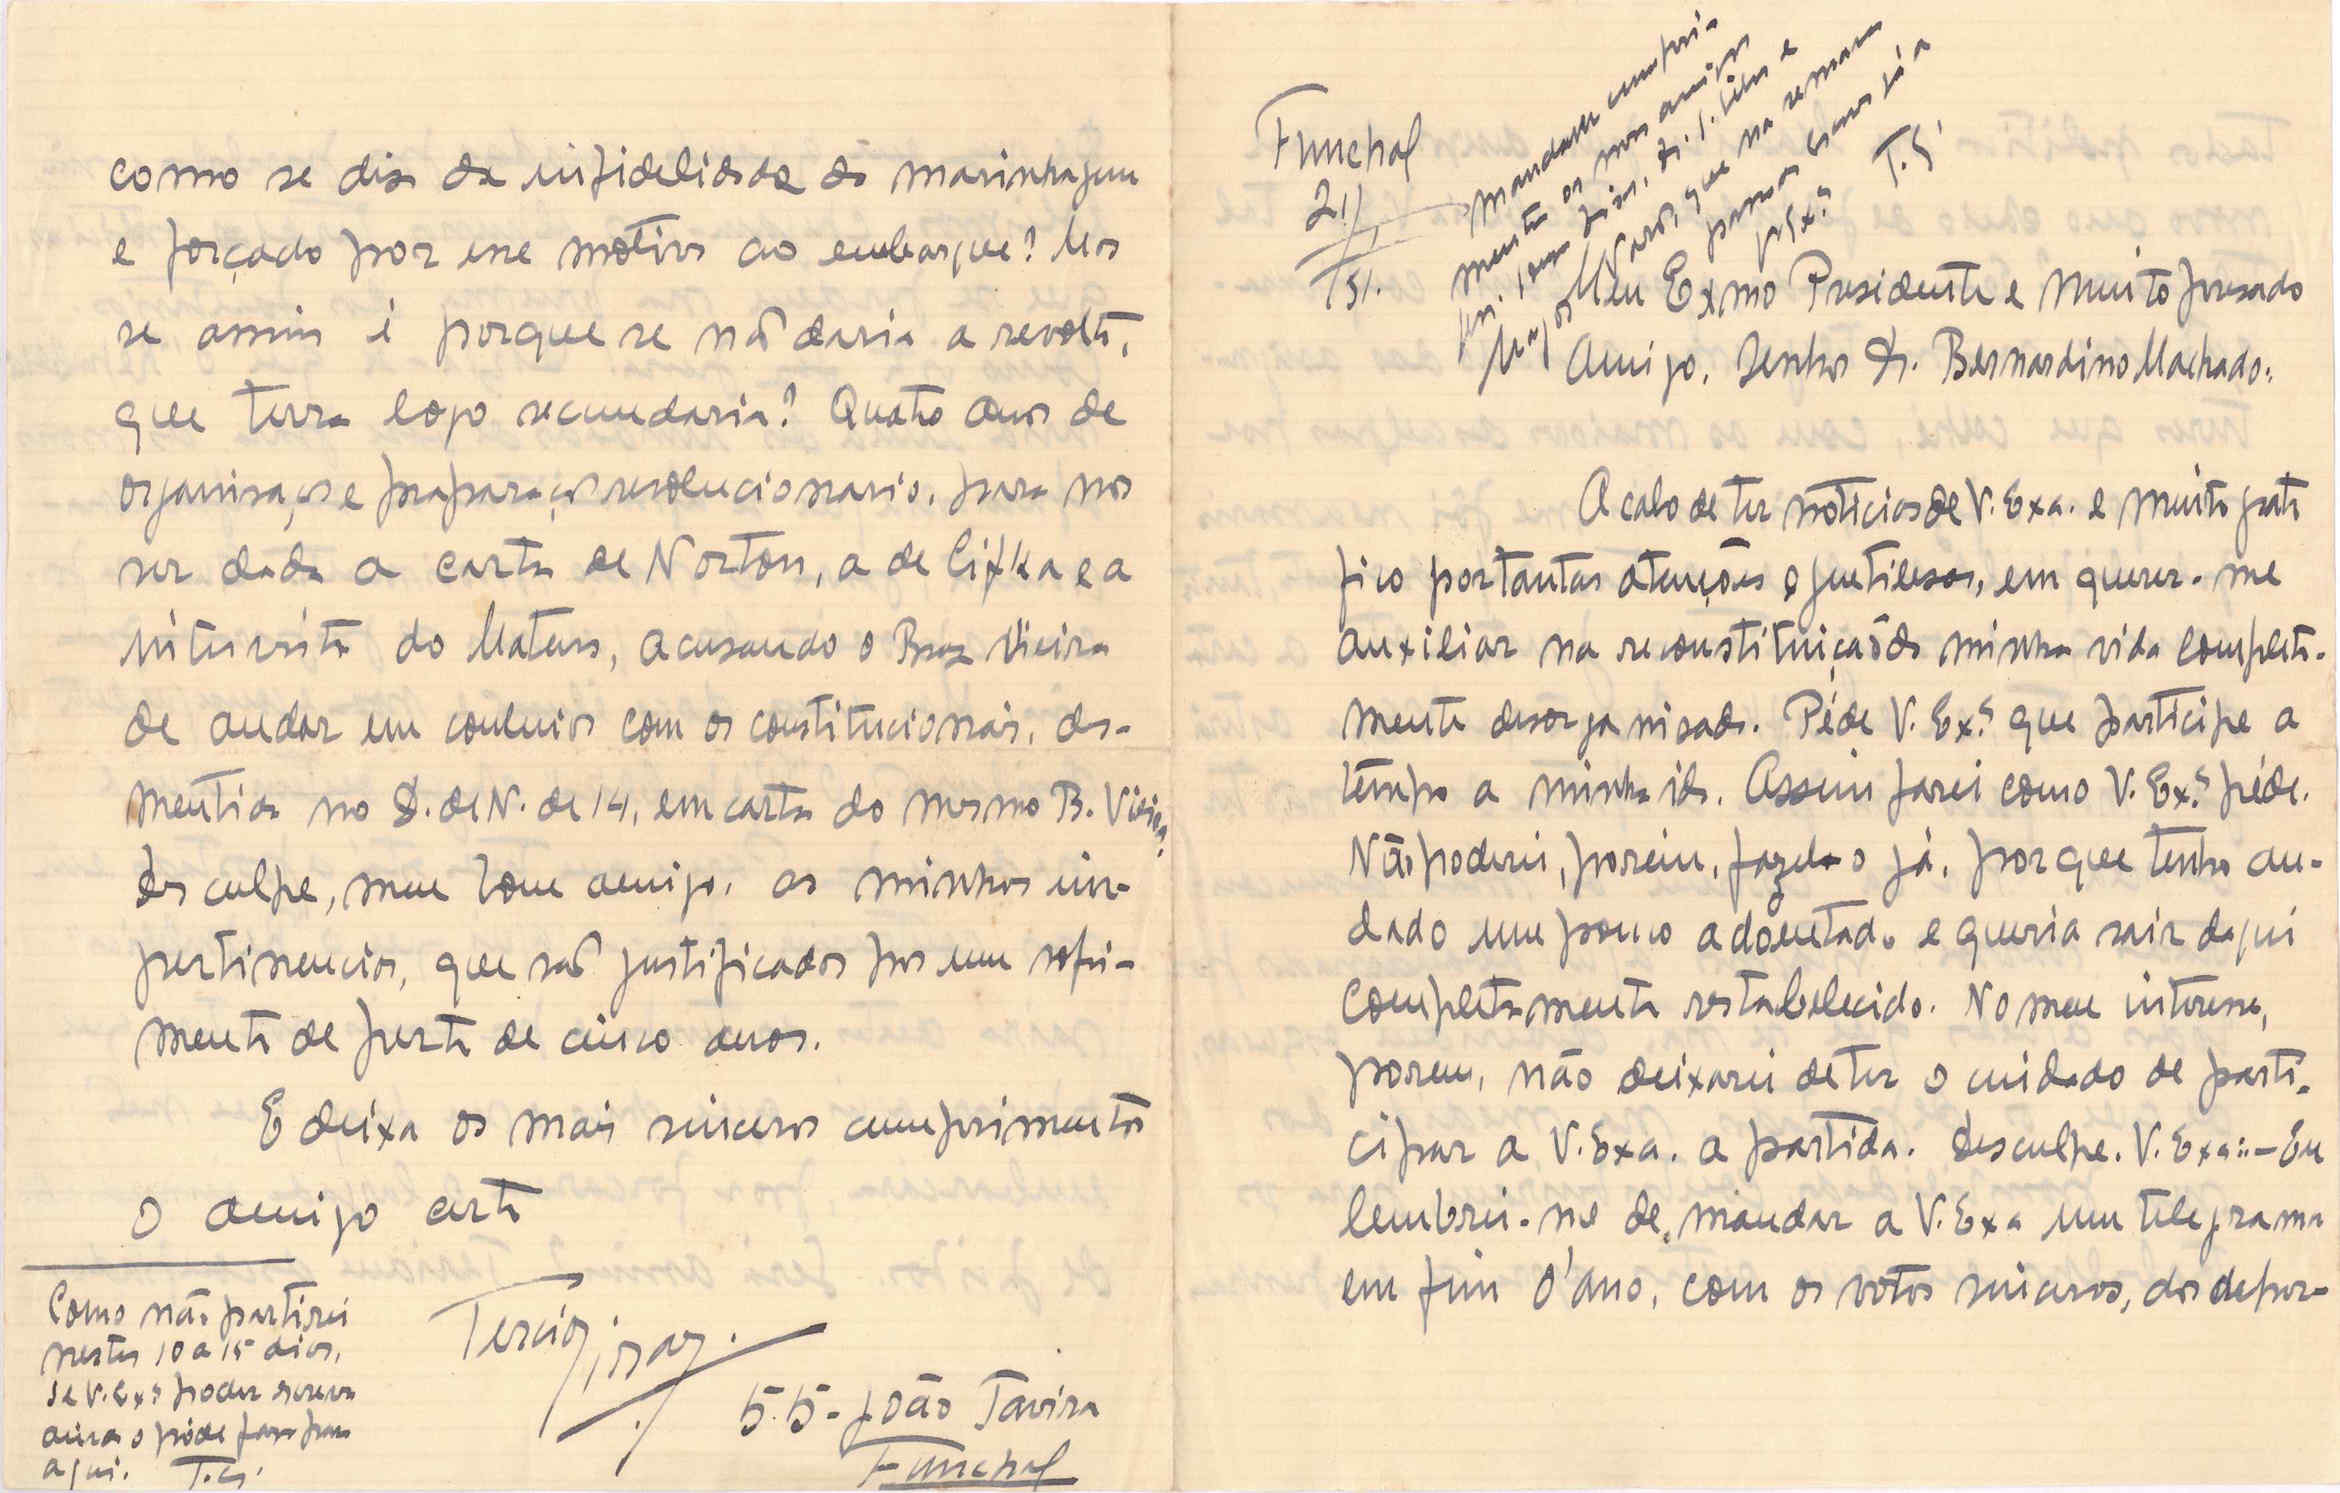 Funchal
21/
1/
931.
Mandam cumpri-
mentos os nossos amigos
que na semana
passada escrevi a
V. Exª T. G.
Meu Exmo Presidente e muito presado
Amigo, Senhor Dr. Bernardino Machado:
Acabo de ter noticias de V. Exa. e muito grati
fico por tantas atenções e gentilesas, em querer-me
auxiliar na reconstituição da minha vida completa-
mente desorganisada. Péde V. Exª que participe a
tempo a minha ida. Assim farei como V. Exª péde.
Não poderei, porém, fazel-o já, porque tenho an-
dado um pouco adoentado e queria sair daqui
completamente restabelecido. No meu interesse,
porem, não deixarei de ter o cuidado de parti-
cipar a V. Exa. a partida. Desculpe. V. Exa:-Eu
lembrei-me de mandar a V. Exa um telegrama
em fim d'ano, com os votos sinceros, dos depor-
como se diz da infidelidade da marinhagem
e forçado por esse motivo ao embarque? Mas
se assim é porque se não daria a revolta,
que terra logo secundaria? Quatro anos de
organisação e preparação revolucionaria, para nos
ser dada a carta de Norton, a de Cifka e a
intervista do Mateus, acusando o Braz Vieira
de andar em conluios com os constitucionais, des-
mentida no D. de N. de 14, em carta do mesmo B. Vieira?
Desculpe, meu bom amigo, as minhas im-
pertinencias, que são justificadas por um sofri-
mento de perto de cinco anos.
E deixa os mais sinceros cumprimentos
O amigo certo
55-João Tavira
Funchal
Como não partirei
nestes 10 a 15 dias,
se V. Exª poder escrever
ainda o póde fazer para
aqui. T. G.